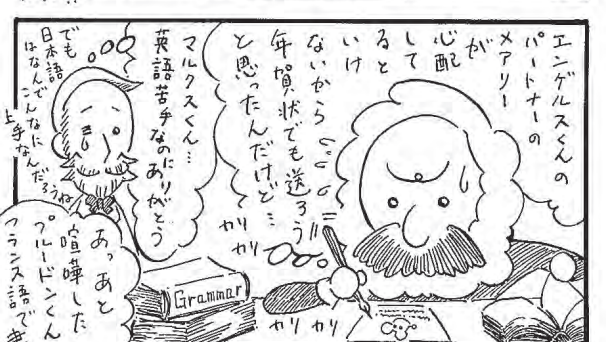 エンゲルスくんの
パートナーの
メアリー
が
心配
して
ると
いけ
ないから
年賀状でも送ろう
と思ったんだけど…
カリ
カリ
カリ
カリ
マルクスくん…
英語苦手なのにありがとう
でも
日本語
はなんで
こんなに
上手なんだろうね
あっあと
喧嘩した
プルードンくん
フランス語で
Grammar